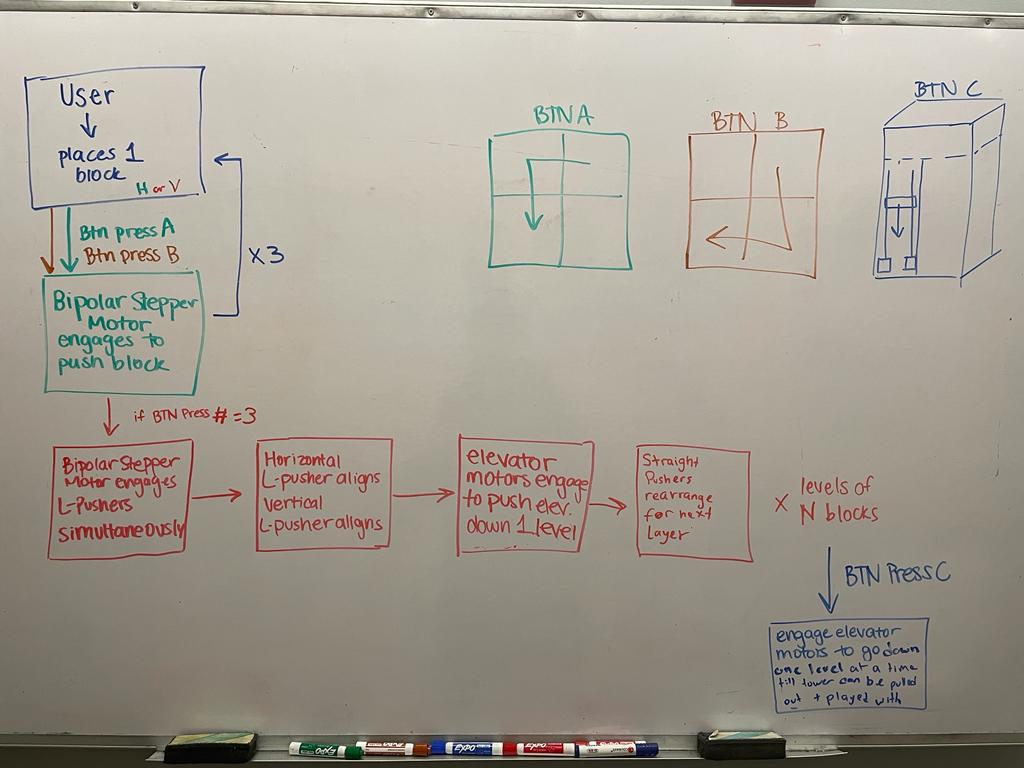 User
places 1
block
H or V
Btn press A
Btn press B
x3
Bipolar Stepper
Motor
engages to
push block
if BTN Press # = 3
Bipolar Stepper
Motor engages
L-Pushers
simultaneously
Horizontal
L-pusher aligns
Vertical
L-pusher alligns
elevator
motors engage
to push elev.
down 1 level
Straight
Pushers
rearrange
for next
Layer
x levels of
N blocks
BTN Press C
engage elevator
motors to go down
one level at a time
till tower can be pulled
out + played with
BTN A
BTN B
BTN C
EXPO
EXPO
EXPO